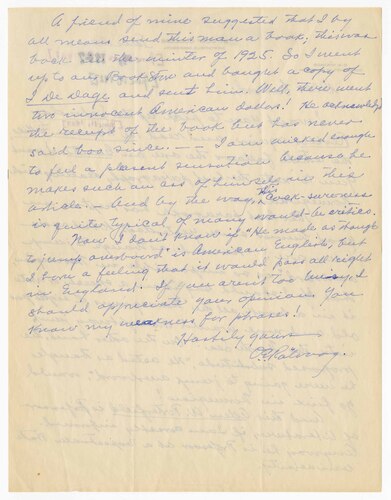 A friend of mine suggested that I by
all means send this man a book; this was
back in the winter of 1925. So I went
up to our Book Store and bought a copy of
I De Dage, and sent him. Well, there went
two innocent American dollars! He acknowledged
the receipt of the book but has never
said boo since. — — I am wicked enough
to feel a pleasant sensation because he
makes such an ass of himself in this
article. – And by the way, this cock-sureness
is quite typical of many would-be critics.
Now I don't know if "He made as though
to jump overboard" is American English, but
I have a feeling that it would pass all right
in England. If you aren't too busy, I
should appreciate your opinion. You
know my weakness for phrases!
Hastily yours